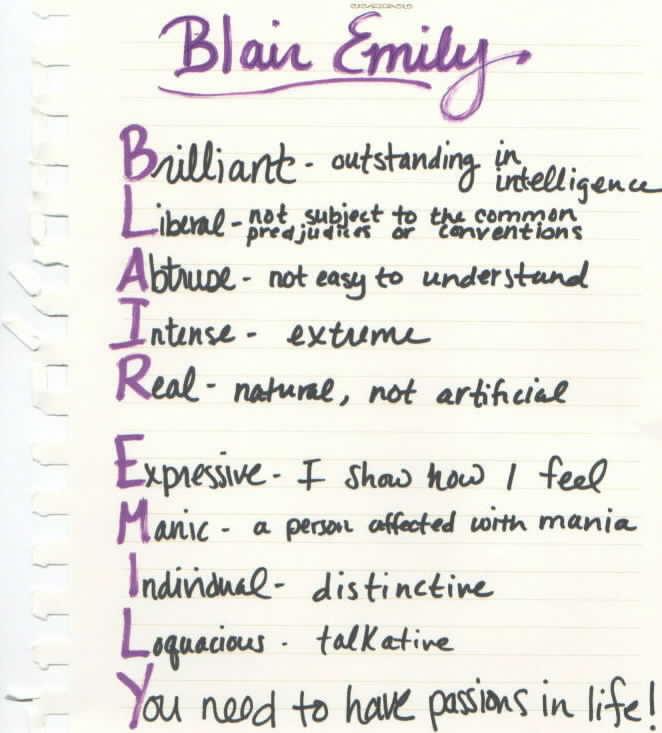 Blair Emily
Brilliant - outstanding in
intelligence
Liberal - not subject to the common
predjudices or conventions
Abtruse - not easy to understand
Intense - extreme
Real - natural, not artificial
Expressive - I show how I feel
Manic - a person affected with mania
Individual - distinctive
Loquacious - talkative
You need to have passions in life!